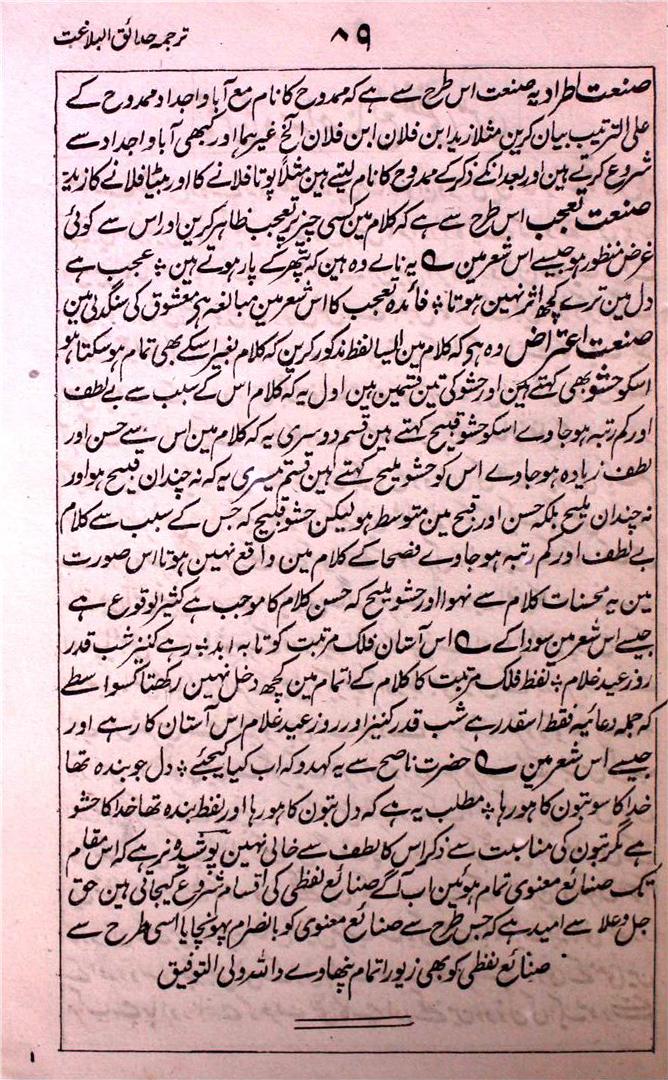 ۸۹
ترجمہ حدائق البلاغت
صنعت اطراد یہ صنعت اس طرح سے ہے کہ ممدوح کا نام مع آبا و اجداد ممدوح کے
علی الترتیب بیان کرین مثلا زید ابن فلان ابن فلان الخ غیرہما اور کبھی آبا و اجداد سے
شروع کرتے ہین اور بعد انکے ذکر کے ممدوح کا نام لیتے ہین مثلاً پوتا فلانے کا اور بیٹا فلانے کا زید
صنعت تعجب اس طرح سے ہے کہ کلام مین کسی چیز پر تعجب ظاہر کرین اور اس سے کوئی
غرض منظور ہو جیسے اس شعر مین ؎ یہ نالے وہ ہین کہ پتھر کے پار ہوتے ہین ؛ عجب ہے
دل مین ترے کچھ اثر نہین ہوتا ؛ فائدہ تعجب کا اس شعر مین مبالغہ ہی معشوق کی سنگدلی مین
صنعت اعتراض وہ ہی کہ کلام مین ایسا لفظ مذکور کرین کہ کلام بغیر اسکے بھی تمام ہو سکتا ہو
اسکو حشو بھی کہتے ہین اور حشو کی تین قسمین ہین اول یہ کہ کلام اس کے سبب سے بے لطف
اور کم رتبہ ہو جاوے اسکو حشو قبیح کہتے ہین قسم دوسری یہ کہ کلام مین اس سے حسن اور
لطف زیادہ ہو جاوے اس کو حشو ملیح کہتے ہین قسم تیسری یہ کہ نہ چندان قبیح ہو اور
نہ چندان ملیح بلکہ حسن اور قبح مین متوسط ہو لیکن حشو قبیح کہ جس کے سبب سے کلام
بے لطف اور کم رتبہ ہو جاوے فصحا کے کلام مین واقع نہین ہوتا اس صورت
مین یہ محسنات کلام سے نہوا اور حشو ملیح کہ حسن کلام کا موجب ہے کثیر الوقوع ہے
جیسے اس شعر مین سودا کے ؎ اس آستان فلک مرتبت کو تا بہ ابد ؛ رہے کنیز شب قدر
روز عید غلام ؛ لفظ فلک مرتبت کا کلام کے اتمام مین کچھ دخل نہین رکھتا کسواسطے
کہ جملہ دعائیہ فقط اسقدر ہے شب قدر کنیز اور روز عید غلام اس آستان کا رہے اور
جیسے اس شعر مین ؎ حضرت ناصح سے یہ کہدو کہ اب کیا کیجئے ؛ دل جو بندہ تھا
خدا کا سو بتون کا ہو رہا ؛ مطلب یہ ہے کہ دل بتون کا ہو رہا اور لفظ بندہ تھا خدا کا حشو
ہے مگر بتون کی مناسبت سے ذکر اس کا لطف سے خالی نہین پوشیدہ نرہے کہ اس مقام
تک صنائع معنوی تمام ہوئین اب آگے صنائع لفظی کی اقسام شروع کیجاتی ہین حق
جل و علا سے امید ہے کہ جس طرح سے صنائع معنوی کو بانصرام پہونچایا اسی طرح سے
صنائع لفظی کو بھی زیور اتمام پنھاوے واللہ ولی التوفیق